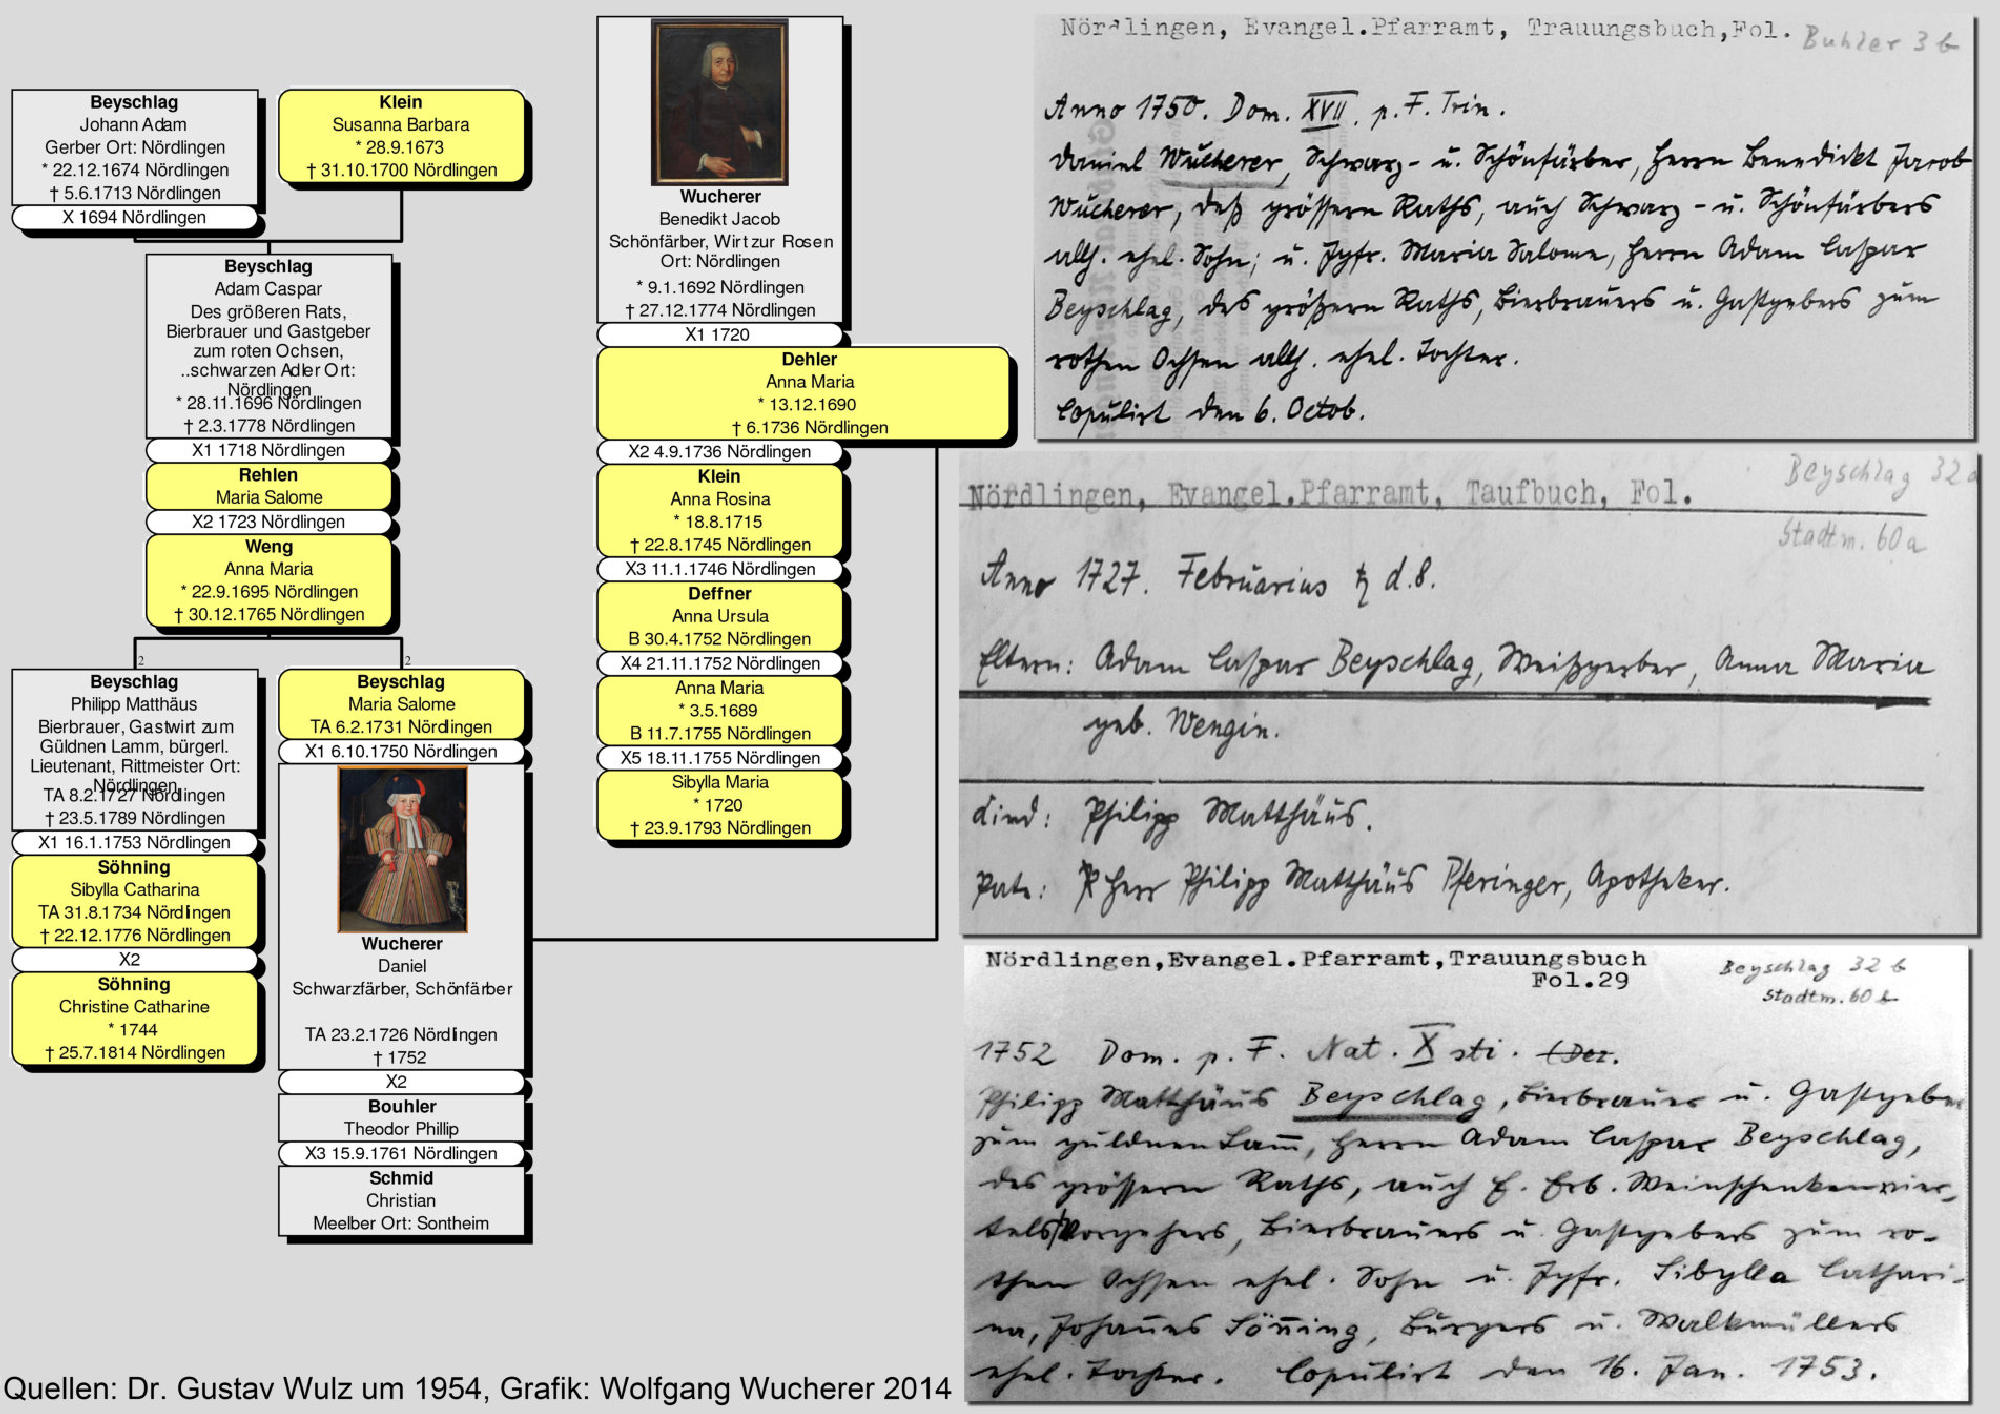 Beyschlag
Johann Adam
Gerber Ort: Nördlingen
* 22.12.1674 Nördlingen
† 5.6.1713 Nördlingen
X 1694 Nördlingen
Klein
Susanna Barbara
* 28.9.1673
† 31.10.1700 Nördlingen
Beyschlag
Adam Caspar
Des größeren Rats,
Bierbrauer und Gastgeber
zum roten Ochsen,
..schwarzen Adler Ort:
Nördlingen
* 28.11.1696 Nördlingen
† 2.3.1778 Nördlingen
X1 1718 Nördlingen
Rehlen
Maria Salome
X2 1723 Nördlingen
Weng
Anna Maria
* 22.9.1695 Nördlingen
† 30.12.1765 Nördlingen
2
2
Beyschlag
Philipp Matthäus
Bierbrauer, Gastwirt zum
Güldnen Lamm, bürgerl.
Lieutenant, Rittmeister Ort:
Nördlingen
TA 8.2.1727 Nördlingen
† 23.5.1789 Nördlingen
X1 16.1.1753 Nördlingen
Söhning
Sibylla Catharina
TA 31.8.1734 Nördlingen
† 22.12.1776 Nördlingen
X2
Söhning
Christine Catharine
* 1744
† 25.7.1814 Nördlingen
Beyschlag
Maria Salome
TA 6.2.1731 Nördlingen
X1 6.10.1750 Nördlingen
Wucherer
Daniel
Schwarzfärber, Schönfärber
TA 23.2.1726 Nördlingen
† 1752
X2
Bouhler
Theodor Phillip
X3 15.9.1761 Nördlingen
Schmid
Christian
Meelber Ort: Sontheim
Wucherer
Benedikt Jacob
Schönfärber, Wirt zur Rosen
Ort: Nördlingen
* 9.1.1692 Nördlingen
† 27.12.1774 Nördlingen
X1 1720
Dehler
Anna Maria
* 13.12.1690
† 6.1736 Nördlingen
X2 4.9.1736 Nördlingen
Klein
Anna Rosina
* 18.8.1715
† 22.8.1745 Nördlingen
X3 11.1.1746 Nördlingen
Deffner
Anna Ursula
B 30.4.1752 Nördlingen
X4 21.11.1752 Nördlingen
Anna Maria
* 3.5.1689
B 11.7.1755 Nördlingen
X5 18.11.1755 Nördlingen
Sibylla Maria
* 1720
† 23.9.1793 Nördlingen
Nördlingen, Evangel.Pfarramt, Trauungsbuch,Fol. Buhler 3 b
Anno 1750. Dom. XVII. p. F. Trin.
Daniel Wucherer, Schwarz- u. Schönfärber, Herrn Benedickt Jacob
Wucherer, deß grössern Raths, auch Schwarz- u. Schönfärbers
allh. ehel. Sohn; u. Jgfr. Maria Salome, Herrn Adam Caspar
Beyschlag, des größern Raths, Bierbrauers u. Gastgebers zum
rothen Ochsen allh. ehel. Tochter.
Copulirt den 6. Octob.
Beyschlag 32a
Nördlingen, Evangel.Pfarramt, Taufbuch, Fol.
Stadtm. 60a
Anno 1727. Februarius ♄ d. 8.
Eltern: Adam Caspar Beyschlag, Weißgerber, Anna Maria
geb. Wengin.
Kind: Philipp Matthäus.
Pate: Herr Philipp Matthäus Pferinger, Apotheker.
Nördlingen,Evangel.Pfarramt,Trauungsbuch
Fol.29
Beyschlag 32 b
Stadtm. 60 b
1752 Dom. p. F. Nat. X sti.
Philipp Matthäus Beyschlag, Bierbrauer u. Gastgeber
zum guldnen Lam̅, Herrn Adam Caspar Beyschlag,
des grössern Raths, auch E. Erb. Weinschenkenvier-
telsvorgehers, Bierbrauers u. Gastgebers zum ro-
then Ochsen ehel. Sohn u. Jgfr. Sibylla Cathari-
na, Johannes Sön̅ing, Burgers u. Walkmüllers
ehel. Tochter. Copulirt den 16. Jan. 1753.
Quellen: Dr. Gustav Wulz um 1954, Grafik: Wolfgang Wucherer 2014